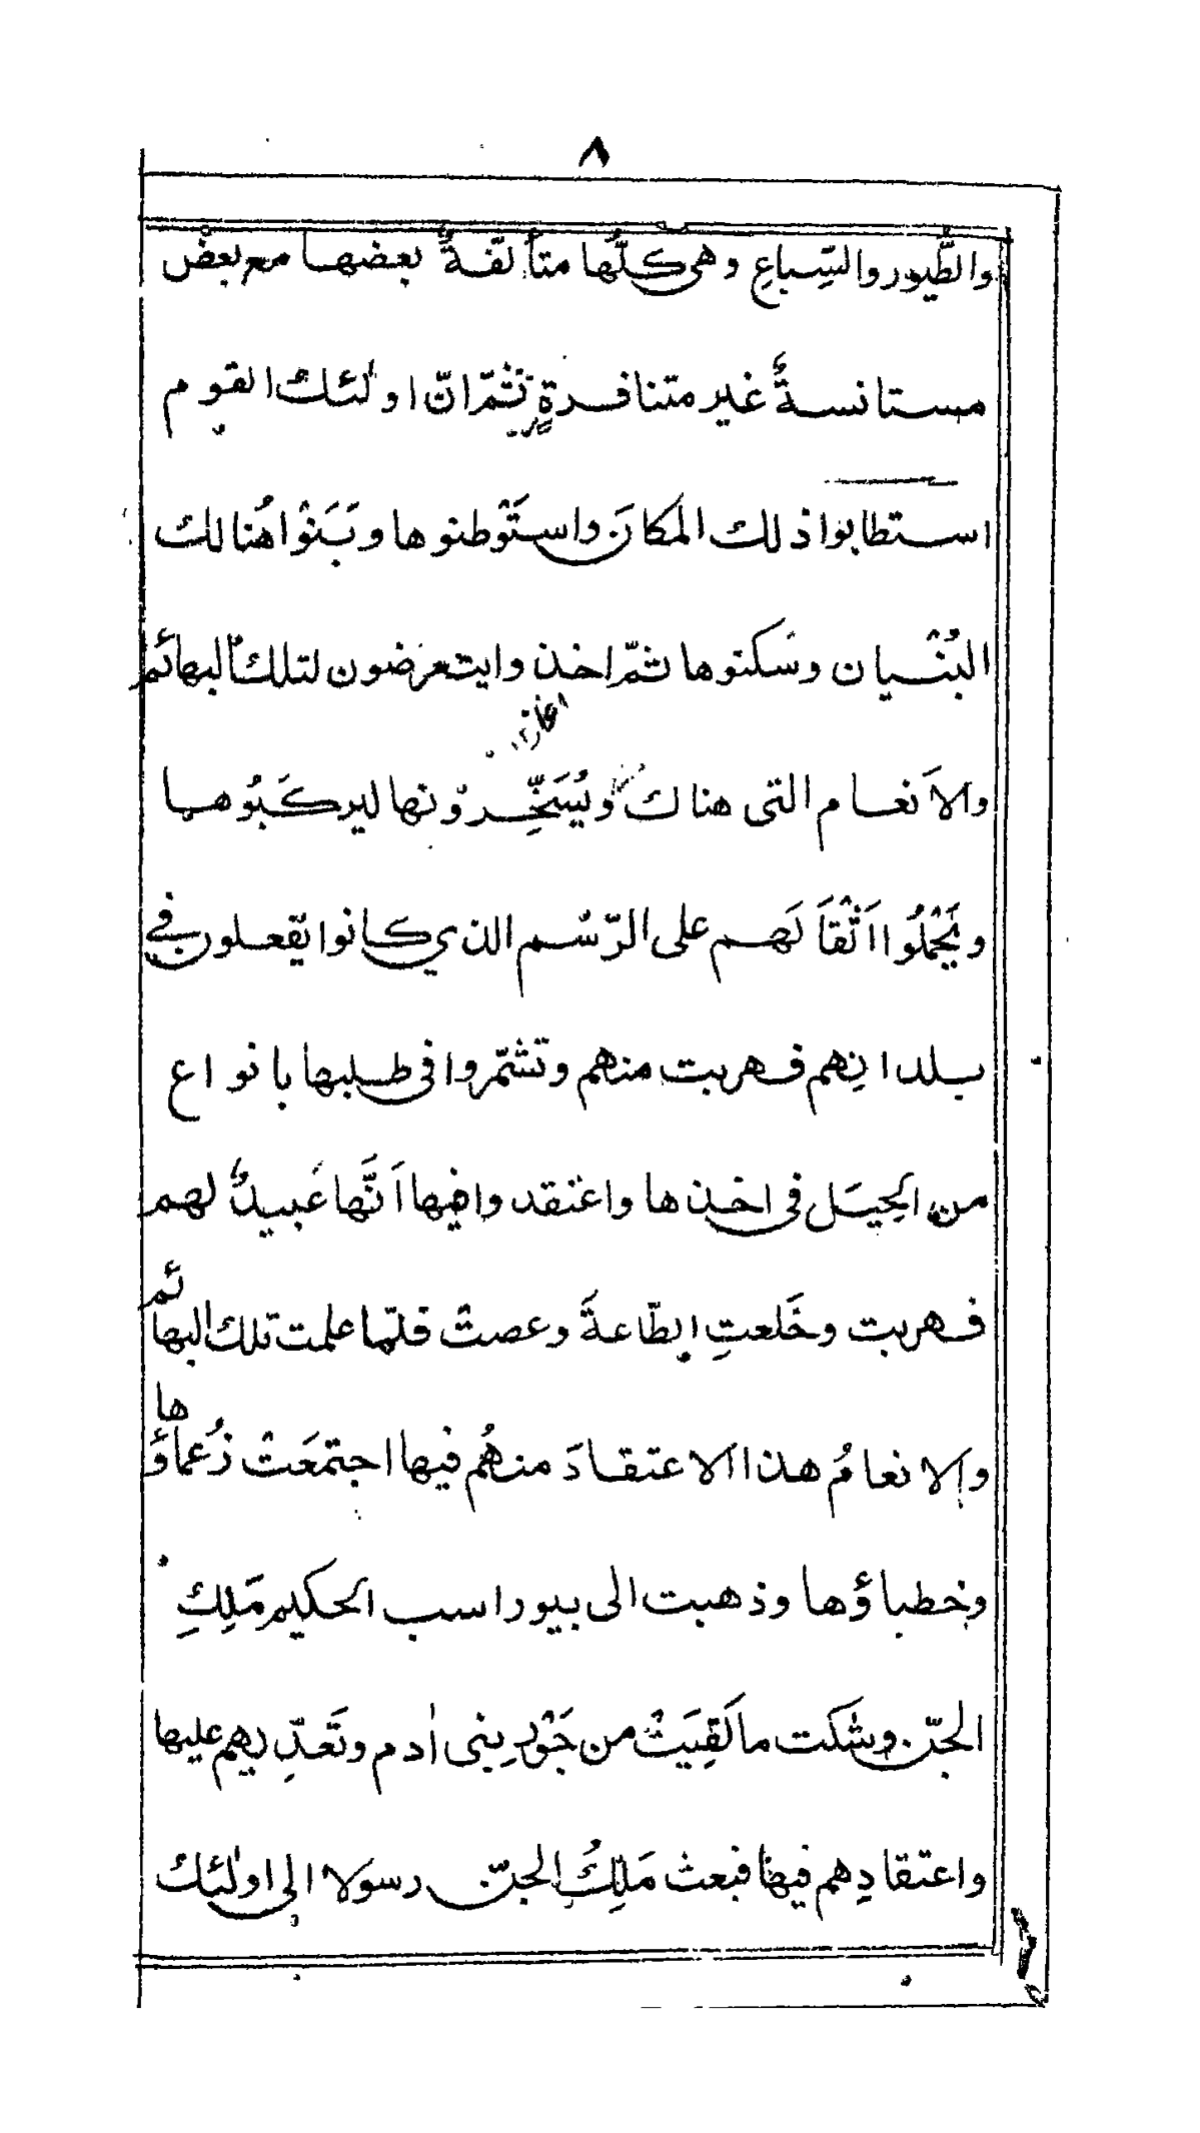 ٨
والطُّيور والسِّباعِ وهى كلُّها متألّفةٌ بعضها مع بعضٍ
مستانسةٌ غير متنافرةٍ ثمّ انّ اولٰئك القوم
استطابوا ذلك المكانَ واستَوْطنوها وبَنَوْا هُنالك
البُنْيان وسَكنوها ثمّ اخذوا يتعرّضون لتلك البهائم
والاَنعام التى هناك ويُسَخِّرونها ليركَبُوها
ويَحْمِلُوا اَثْقاَلَهم على الرّسْم الذي كانوا يَفعلون في
بلدانِهم فهربت منهم وتشمّروا فى طلبها بانواع
من الحِيَل فى اخذها واعتقدوا فيها اَنَّها عَبيدٌ لهم
فهربت وخَلعتِ الطّاعةَ وعصتْ فلمّا علمت تلك البهائم
والانعامُ هذا الاعتقادَ منهُم فيها اجتمَعَتْ زُعماؤُها
وخطباؤها وذهبت الى بيوراسب الحكيم مَلِكِ
الجنّ وشكت ما لَقِيَتْ من جَوْرِ بنى اٰدم وتَعدِّيهم عليها
واعتقادِهم فيها فبعث مَلِكُ الجنّ رسولا الى اولٰئك